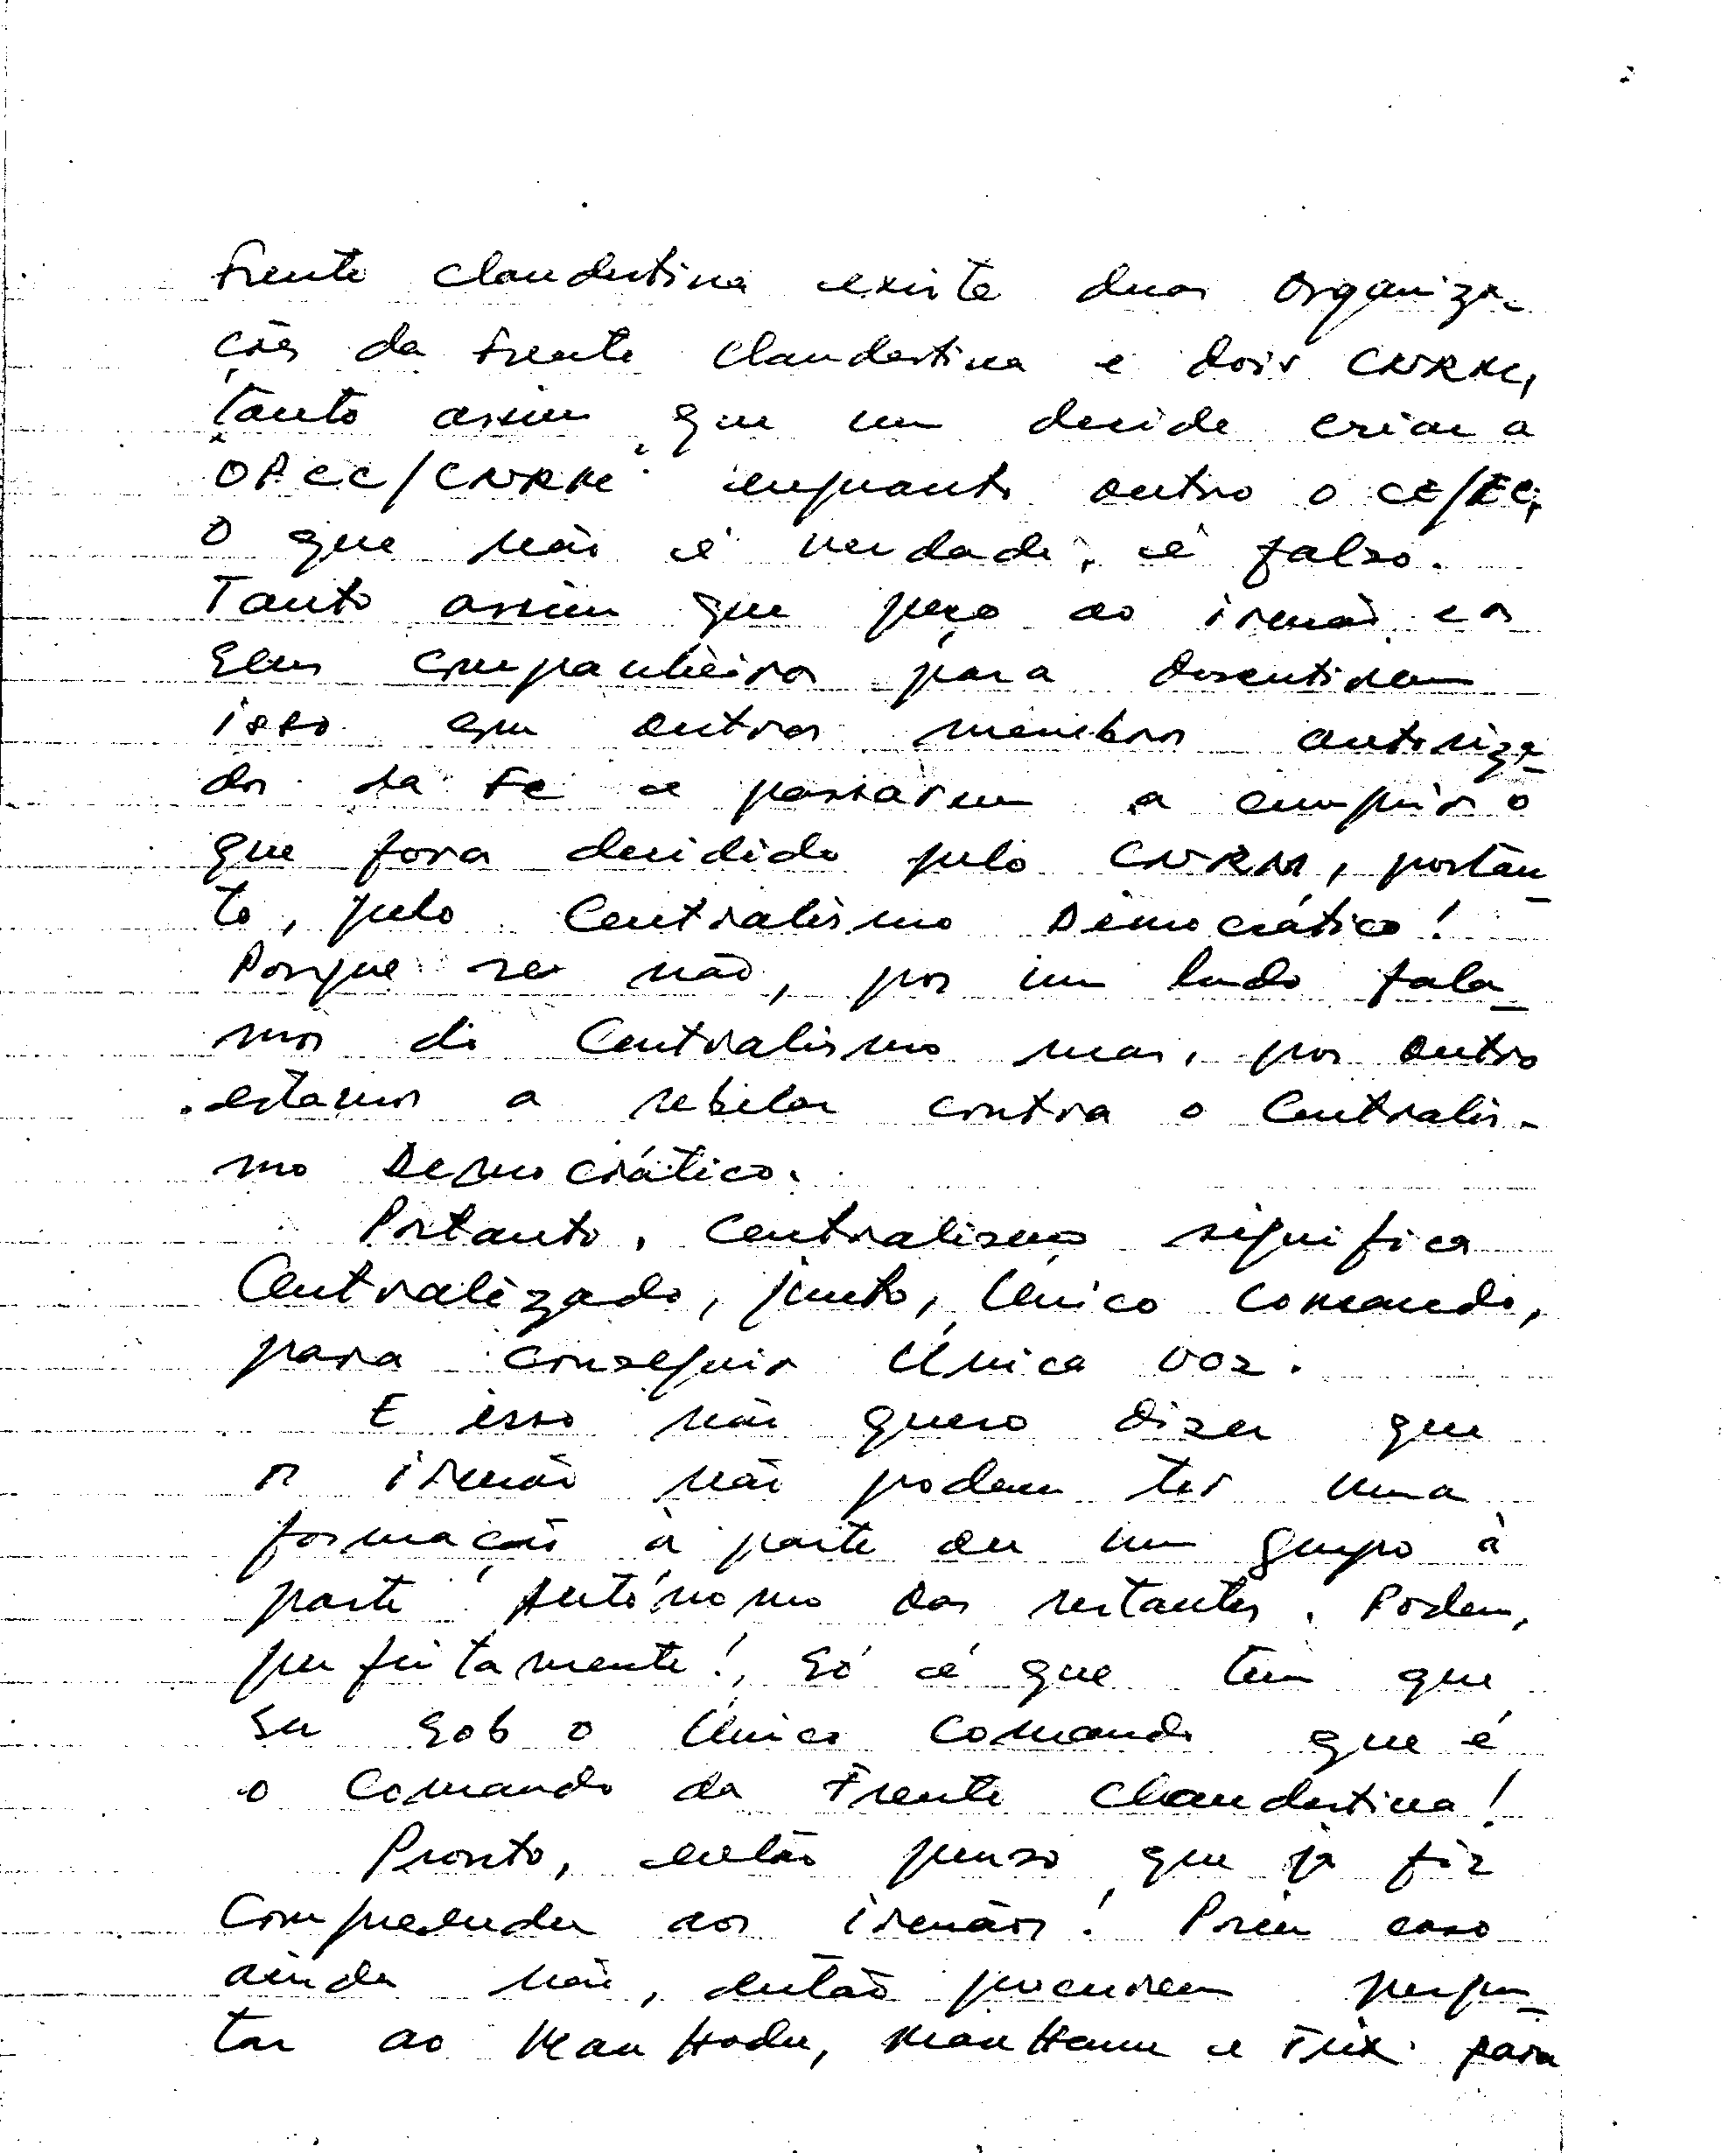 frente clandestina existe duas organiza-
ções da frente clandestina e dois CNRM,
tanto assim que um decide criar a
OPCC/CNRM enquanto outro o CE/FC,
o que não é verdade, é falso.
Tanto assim que peço ao irmão e os
seus companheiros para
isso em outros membros autoriza-
dos da FC e passarem a cumprir o
que fora decidido pelo CNRM, portan-
to, pelo Centralismo Democrático!
Porque se não, por um lado fala-
mos de Centralismo mas, por outro
estamos a rebelar contra o Centralis-
mo Democrático.
Portanto, Centralismo significa
Centralizado, junto, Único Comando,
para conseguir Única voz.
E isso não quero dizer que
os irmãos não podem ter uma
formação à parte ou um grupo à
parte Autónomo dos restantes. Podem,
perfeitamente!, Só é que tem que
ser sob o Único Comando que é
o Comando da Frente Clandestina!
Pronto, então penso que já fiz
Compreender aos irmãos! Porém caso
ainda não, então procurem pergun-
tar ao Mau Hodu, Mau Hunu e Teix para